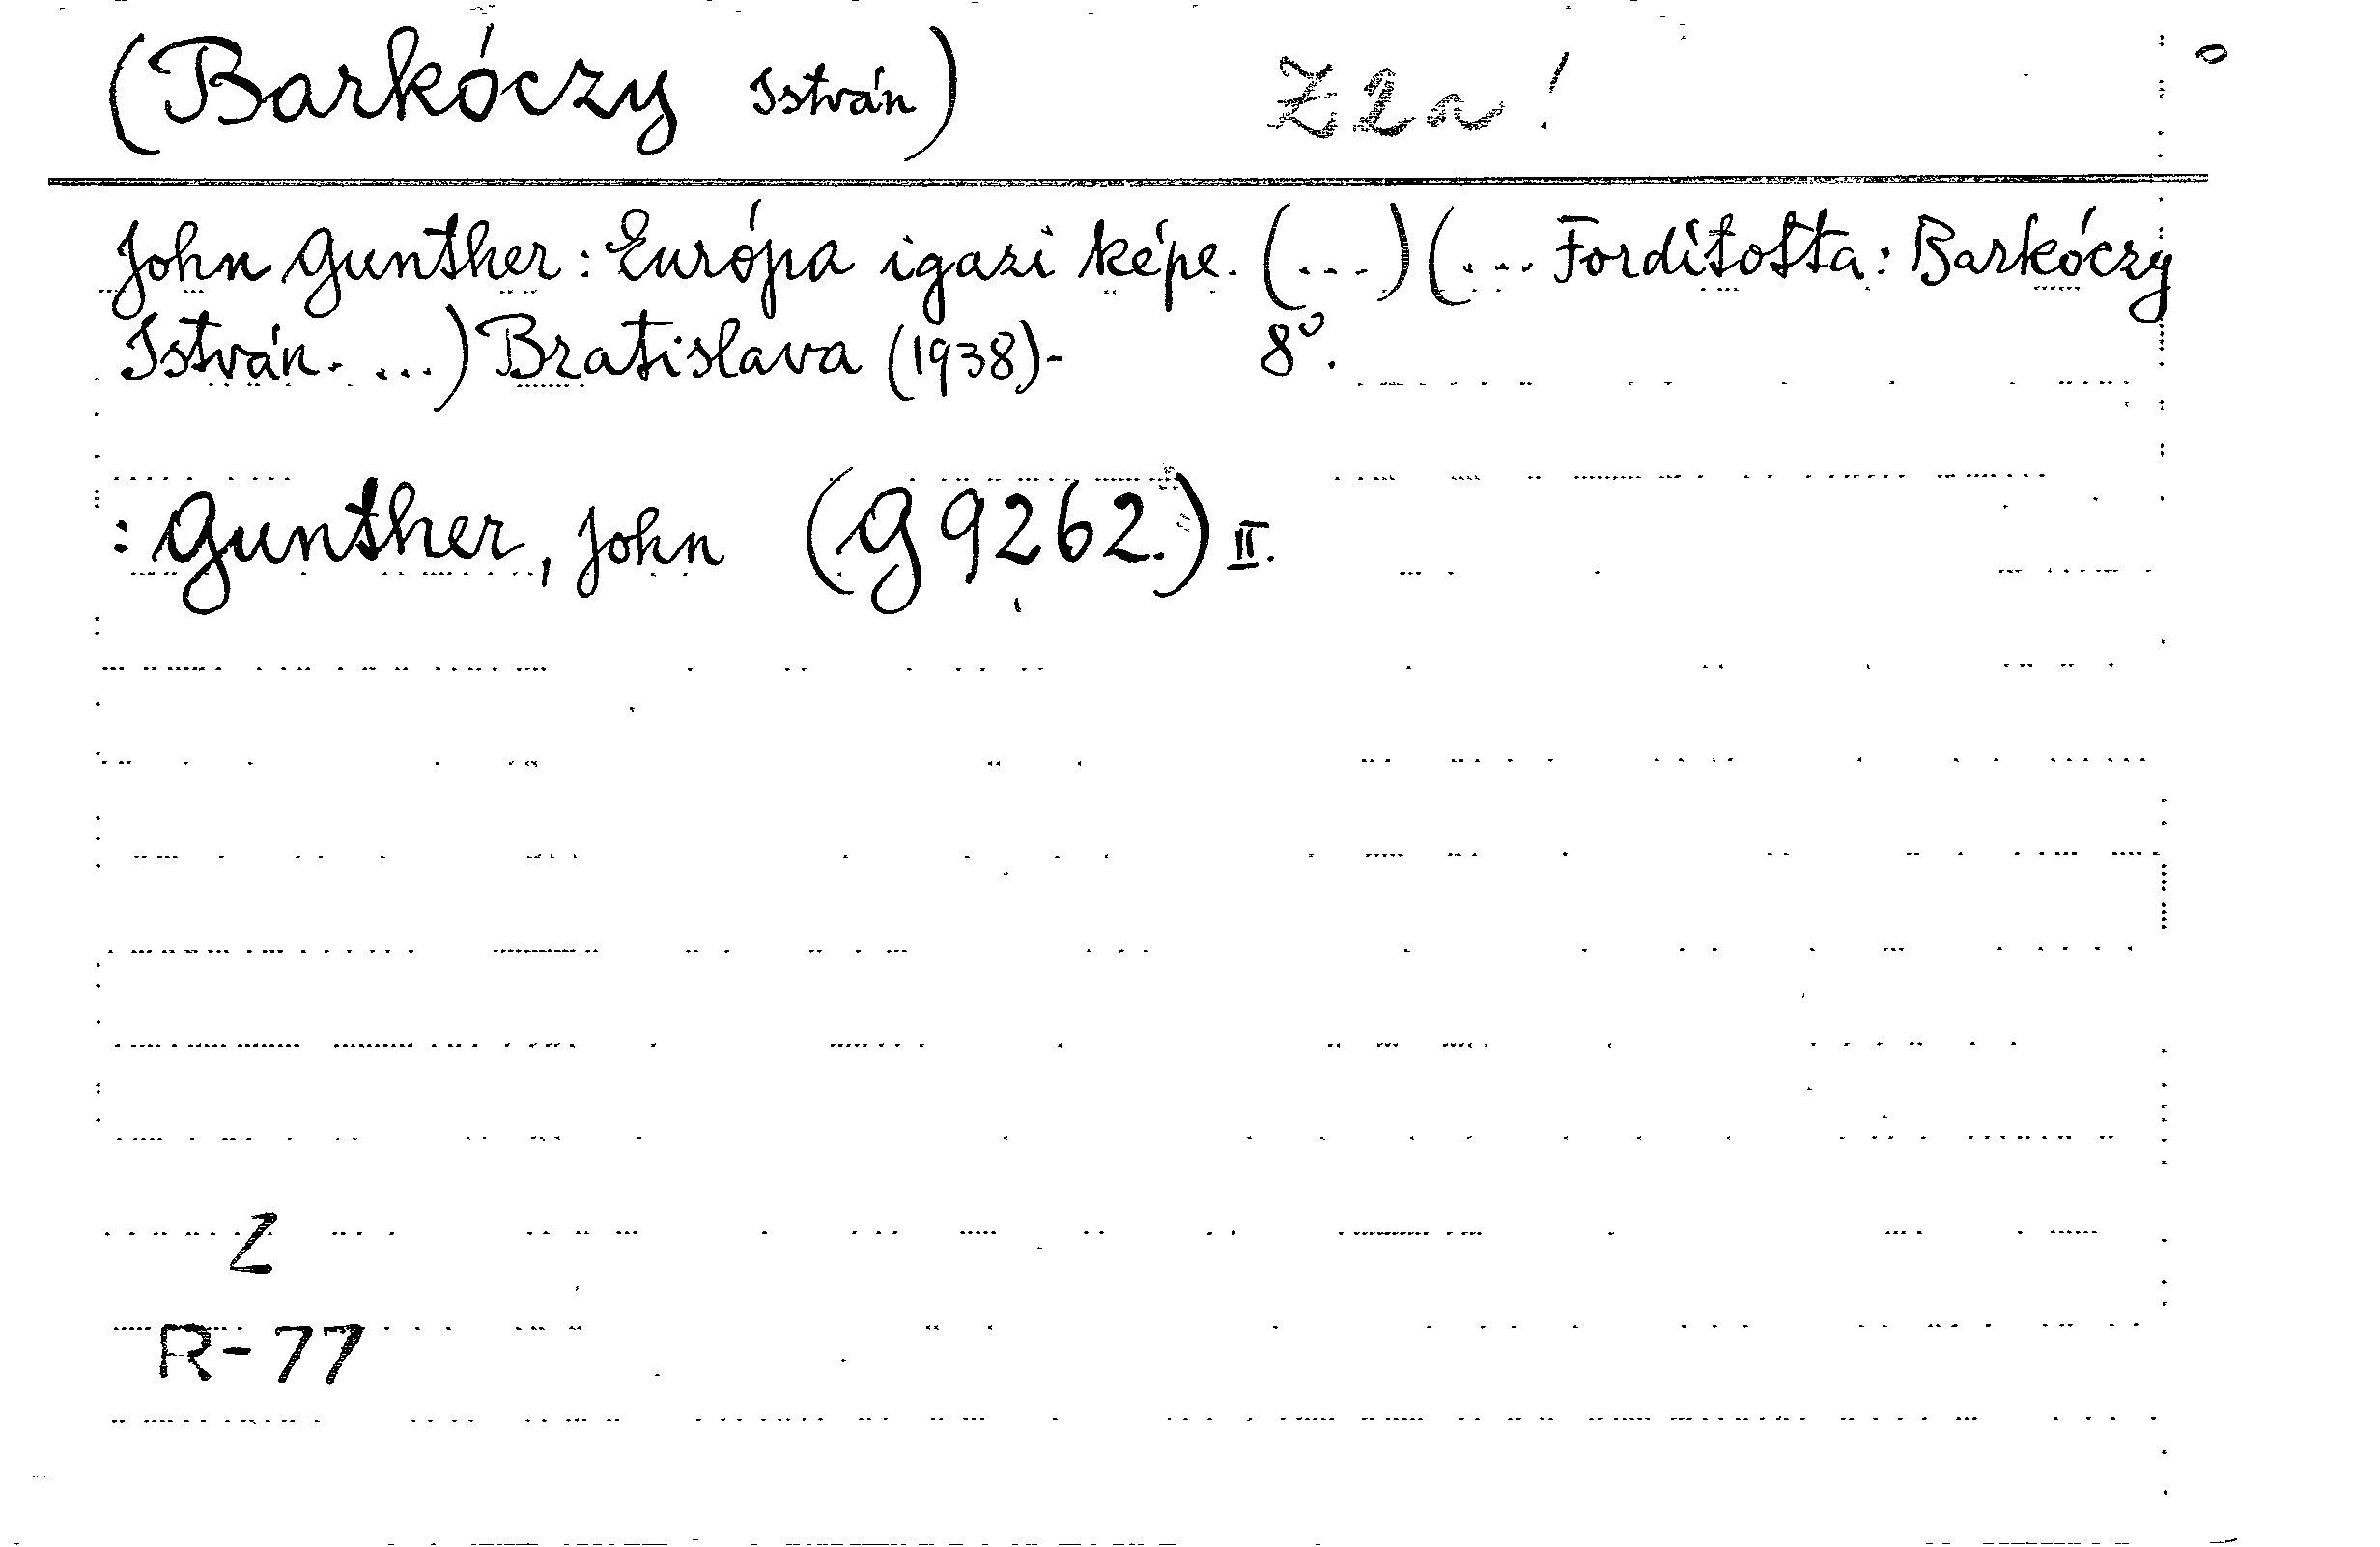 (Barkóczy István) Z2a!
John Gunther: Európa igazi képe. (...) (... Fordította: Barkóczy
István. ...) Bratislava (1938)- 8°.
: Gunther, John (G 9262.) II.
Z
R-77